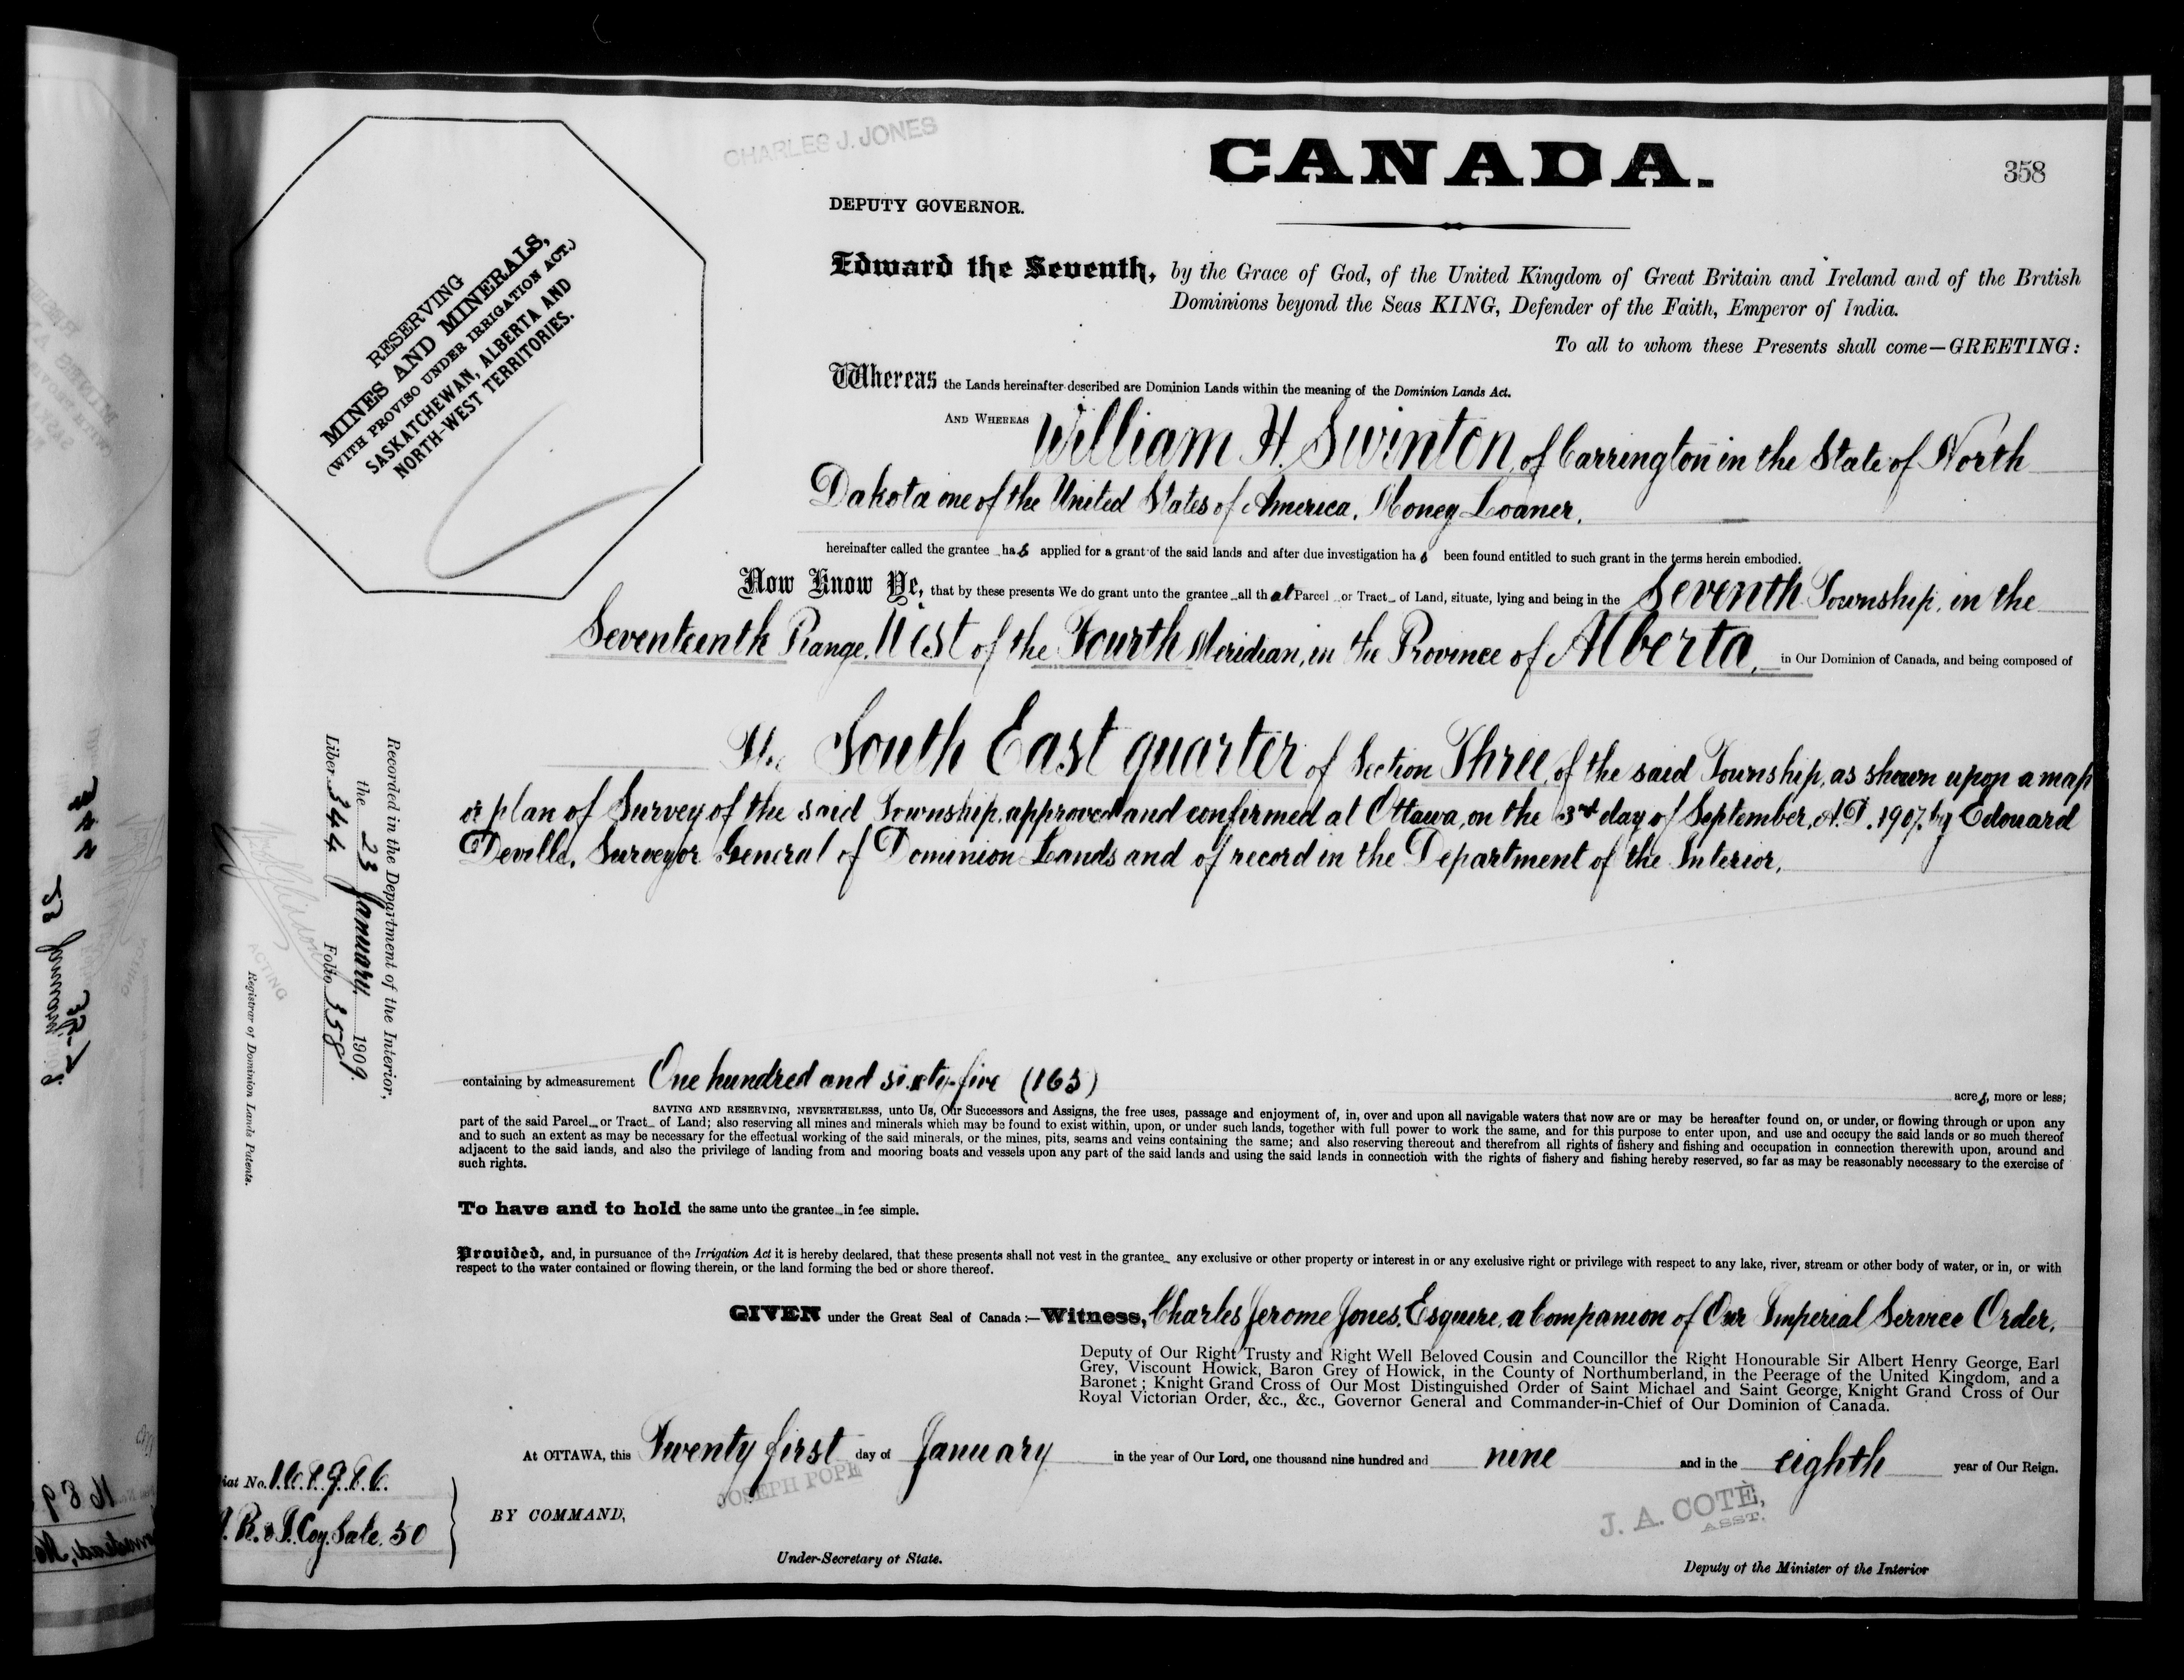 CHARLES J. JONES
CANADA.
358
DEPUTY GOVERNOR.
RESERVING
MINES AND MINERALS,
(WITH PROVISO UNDER IRRIGATION ACT.)
SASKATCHEWAN, ALBERTA AND
NORTH-WEST TERRITORIES.
Edward the Seventh, by the Grace of God, of the United Kingdom of Great Britain and Ireland and of the British
Dominions beyond the Seas KING, Defender of the Faith, Emperor of India.
To all to whom these Presents shall come—GREETING:
Whereas the Lands hereinafter described are Dominion Lands within the meaning of the Dominion Lands Act.
AND WHEREAS William H. Swinton, of Carrington in the State of North
Dakota one of the United States of America, Money Loaner,
hereinafter called the grantee has applied for a grant of the said lands and after due investigation has been found entitled to such grant in the terms herein embodied.
Now Know Ye, that by these presents We do grant unto the grantee all that Parcel or Tract of Land, situate, lying and being in the Seventh Township, in the
Seventeenth Range, West of the Fourth Meridian, in the Province of Alberta, in Our Dominion of Canada, and being composed of
The South East quarter of Section Three, of the said Township, as shown upon a map
or plan of Survey of the said Township, approved and confirmed at Ottawa, on the 3rd day of September, A.D. 1907, by Edouard
Deville, Surveyor General of Dominion Lands and of record in the Department of the Interior.
Recorded in the Department of the Interior,
the 23 January. 1909.
Liber 344 Folio 358
ACTING
Registrar of Dominion Lands Patents.
containing by admeasurement One hundred and sixty-five (165) acres, more or less;
SAVING AND RESERVING, NEVERTHELESS, unto Us, Our Successors and Assigns, the free uses, passage and enjoyment of, in, over and upon all navigable waters that now are or may be hereafter found on, or under, or flowing through or upon any
part of the said Parcel or Tract of Land; also reserving all mines and minerals which may be found to exist within, upon, or under such lands, together with full power to work the same, and for this purpose to enter upon, and use and occupy the said lands or so much thereof
and to such an extent as may be necessary for the effectual working of the said minerals, or the mines, pits, seams and veins containing the same; and also reserving thereout and therefrom all rights of fishery and fishing and occupation in connection therewith upon, around and
adjacent to the said lands, and also the privilege of landing from and mooring boats and vessels upon any part of the said lands and using the said lands in connection with the rights of fishery and fishing hereby reserved, so far as may be reasonably necessary to the exercise of
such rights.
To have and to hold the same unto the grantee in fee simple.
Provided, and, in pursuance of the Irrigation Act it is hereby declared, that these presents shall not vest in the grantee any exclusive or other property or interest in or any exclusive right or privilege with respect to any lake, river, stream or other body of water, or in, or with
respect to the water contained or flowing therein, or the land forming the bed or shore thereof.
GIVEN under the Great Seal of Canada:—Witness, Charles Jerome Jones, Esquire, a Companion of Our Imperial Service Order,
Deputy of Our Right Trusty and Right Well Beloved Cousin and Councillor the Right Honourable Sir Albert Henry George, Earl
Grey, Viscount Howick, Baron Grey of Howick, in the County of Northumberland, in the Peerage of the United Kingdom, and a
Baronet; Knight Grand Cross of Our Most Distinguished Order of Saint Michael and Saint George, Knight Grand Cross of Our
Royal Victorian Order, &c., &c., Governor General and Commander-in-Chief of Our Dominion of Canada.
At OTTAWA, this Twenty first day of January in the year of Our Lord, one thousand nine hundred and nine and in the eighth year of Our Reign.
iat No. 168986.
R. & I. Coy. Sale. 50
JOSEPH POPE
BY COMMAND,
Under-Secretary of State.
J. A. COTÈ,
ASST.
Deputy of the Minister of the Interior